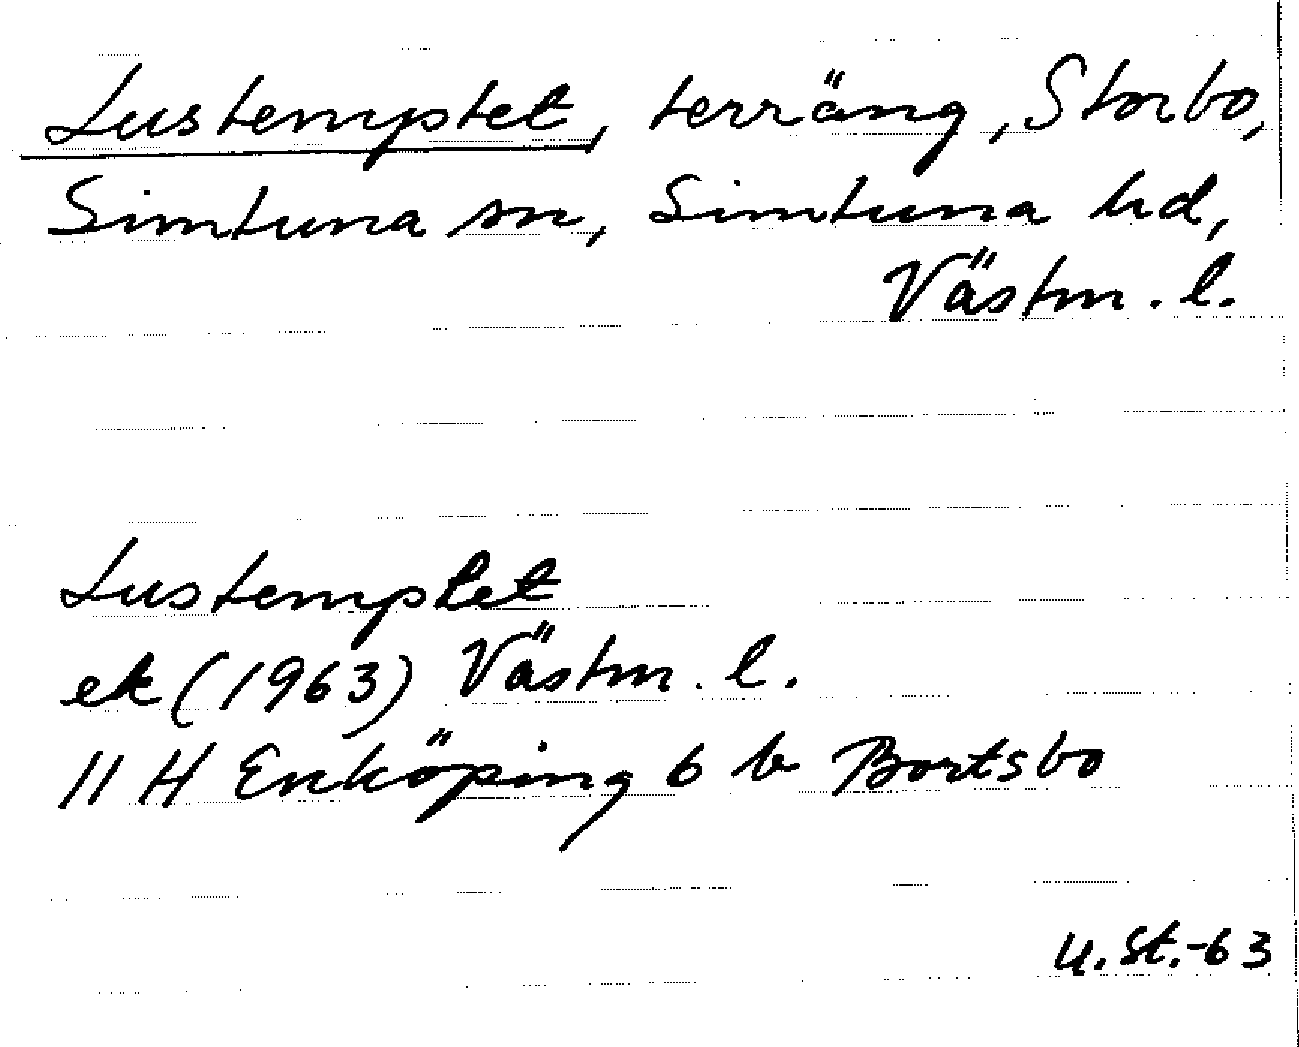 Lustemptet, terräng, Storbo,
Simtuna sn, Simtuna hd,
Västm. l.
Lustemplet
ek (1963) Västm. l.
11 H Enköping 6 b Bortsbo
U.St.-63